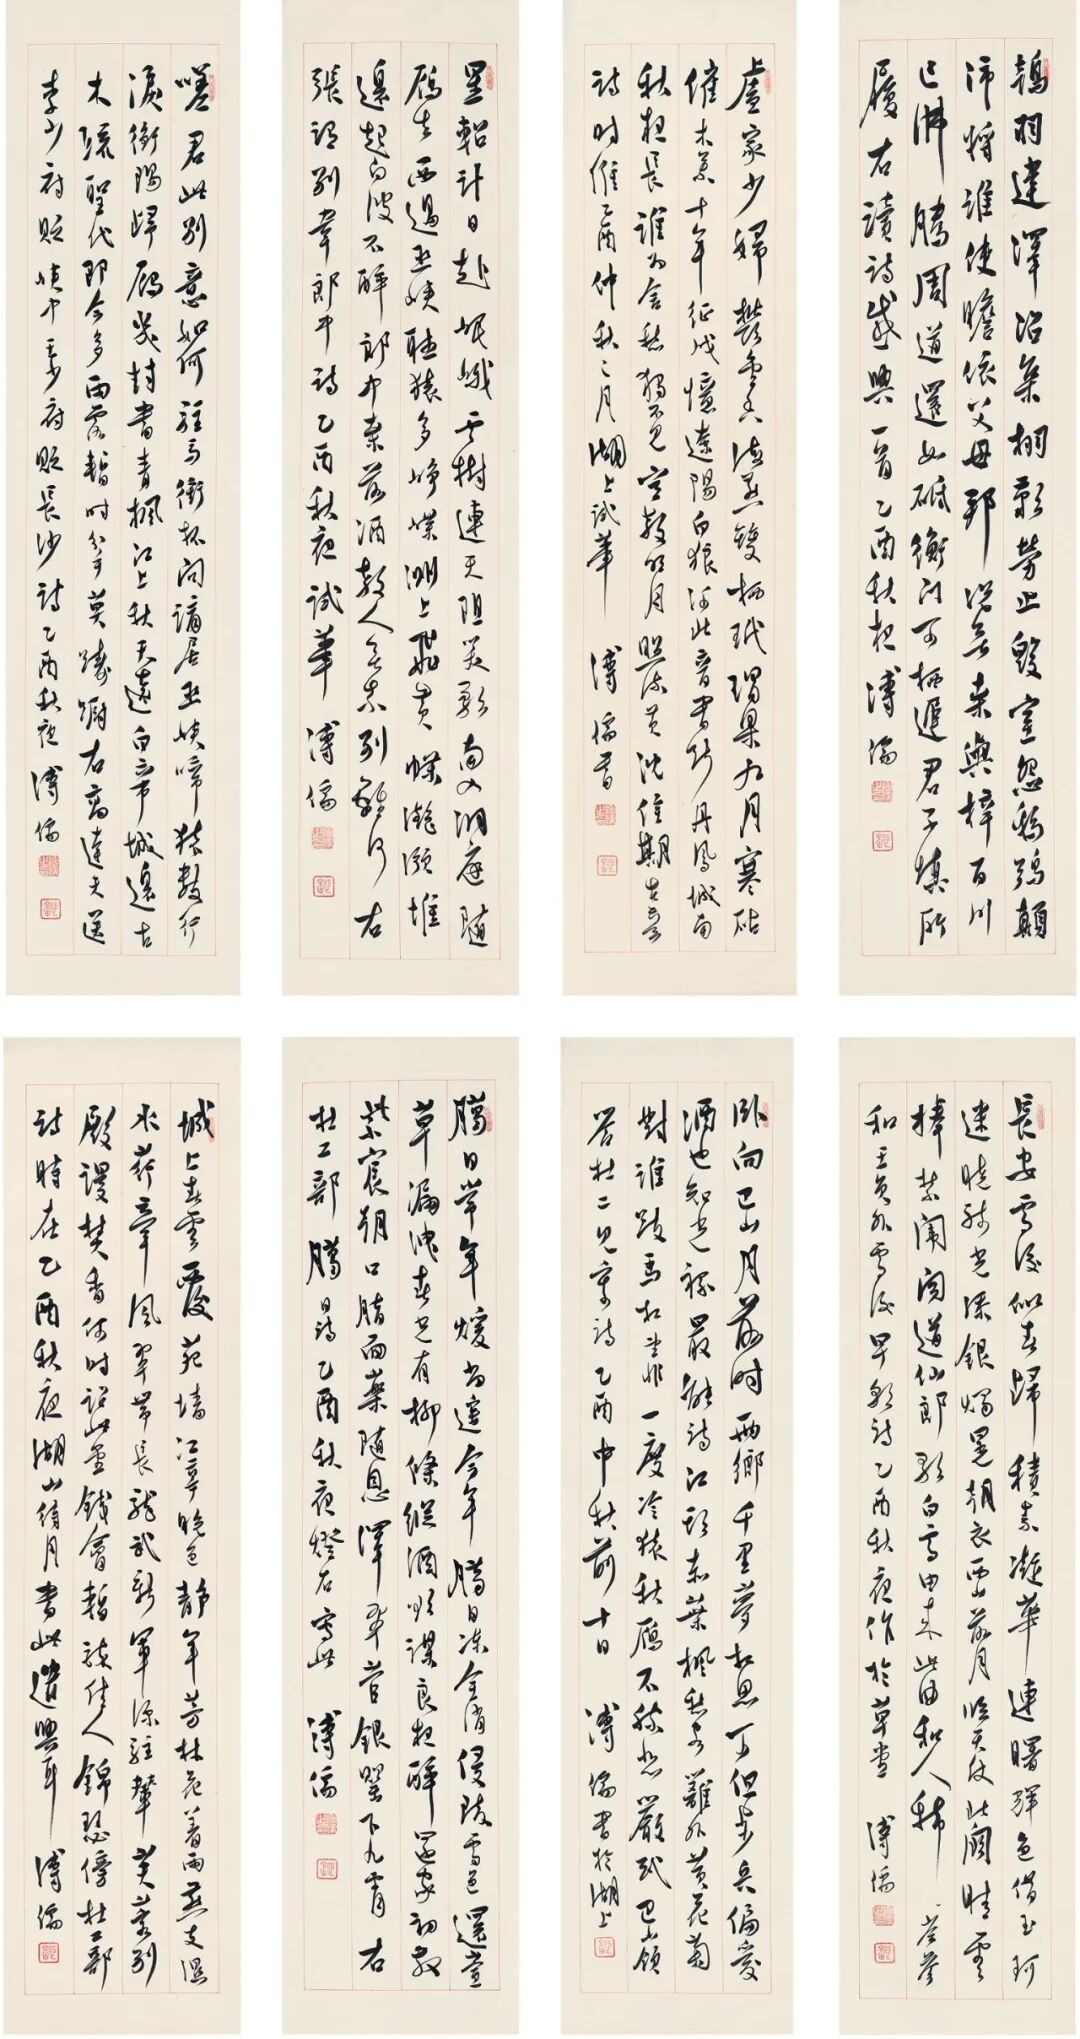 鴇羽違澤沼集栩歎勞止毀室怨鴟鴞顛
沛將誰使瞻依父母邦無桑與梓百川
已沸騰周道還如砥衡門可栖遲君子慎所
履右讀詩感興一首乙酉秋夜溥儒
盧家少婦鬱金香海燕雙栖玳瑁梁九月寒砧
催木葉十年征戍憶遼陽白狼河北音書斷丹鳳城南
秋夜長誰為含愁獨不見空教明月照流黃沈佺期古意
詩時維乙酉仲秋之月湖上試筆溥儒書
星軺計日赴岷峨雲樹連天阻笑歌南入洞庭隨
雁去西過巫峽聽猿多崢嶸洲上飛黃蝶灩澦堆
邊起白波不醉郎中桑落酒教人無奈別離何右
張謂別韋郎中詩乙酉秋夜試筆溥儒
嗟君此別意如何駐馬銜杯問謫居巫峽啼猿數行
淚衡陽歸雁幾封書青楓江上秋天遠白帝城邊古
木疏聖代即今多雨露暫時分手莫躊躇右高達夫送
李少府貶峽中王少府貶長沙詩乙酉秋夜溥儒
長安雪後似春歸積素凝華連曙輝色借玉珂
迷曉騎光添銀燭晃朝衣西山落月臨天仗北闕晴雲
捧禁闈聞道仙郎歌白雪由來此曲和人稀岑參
和王員外雪後早朝詩乙酉秋夜作於草堂溥儒
臥向巴山月落時兩鄉千里夢相思可但步兵偏愛
酒也知光祿最能詩江頭赤葉楓愁客籬外黃花菊
對誰跂馬相望非一度冷猿秋雁不勝悲嚴武巴山嶺
答杜二見寄詩乙酉中秋前十日溥儒書於湖上
臘日常年煖尚遙今年臘日凍全消侵陵雪色還萱
草漏洩春光有柳條縱酒欲謀良夜醉還家初散
紫宸朝口脂面藥隨恩澤翠管銀罌下九霄右
杜工部臘日詩乙酉秋夜燈右寫此溥儒
城上春雲覆苑墻江亭晚色靜年芳林花着雨燕支濕
水荇牽風翠帶長龍武新軍深駐輦芙蓉別
殿謾焚香何時詔此金錢會暫醉佳人錦瑟傍杜工部
詩時在乙酉秋夜湖山待月書此遣興耳溥儒